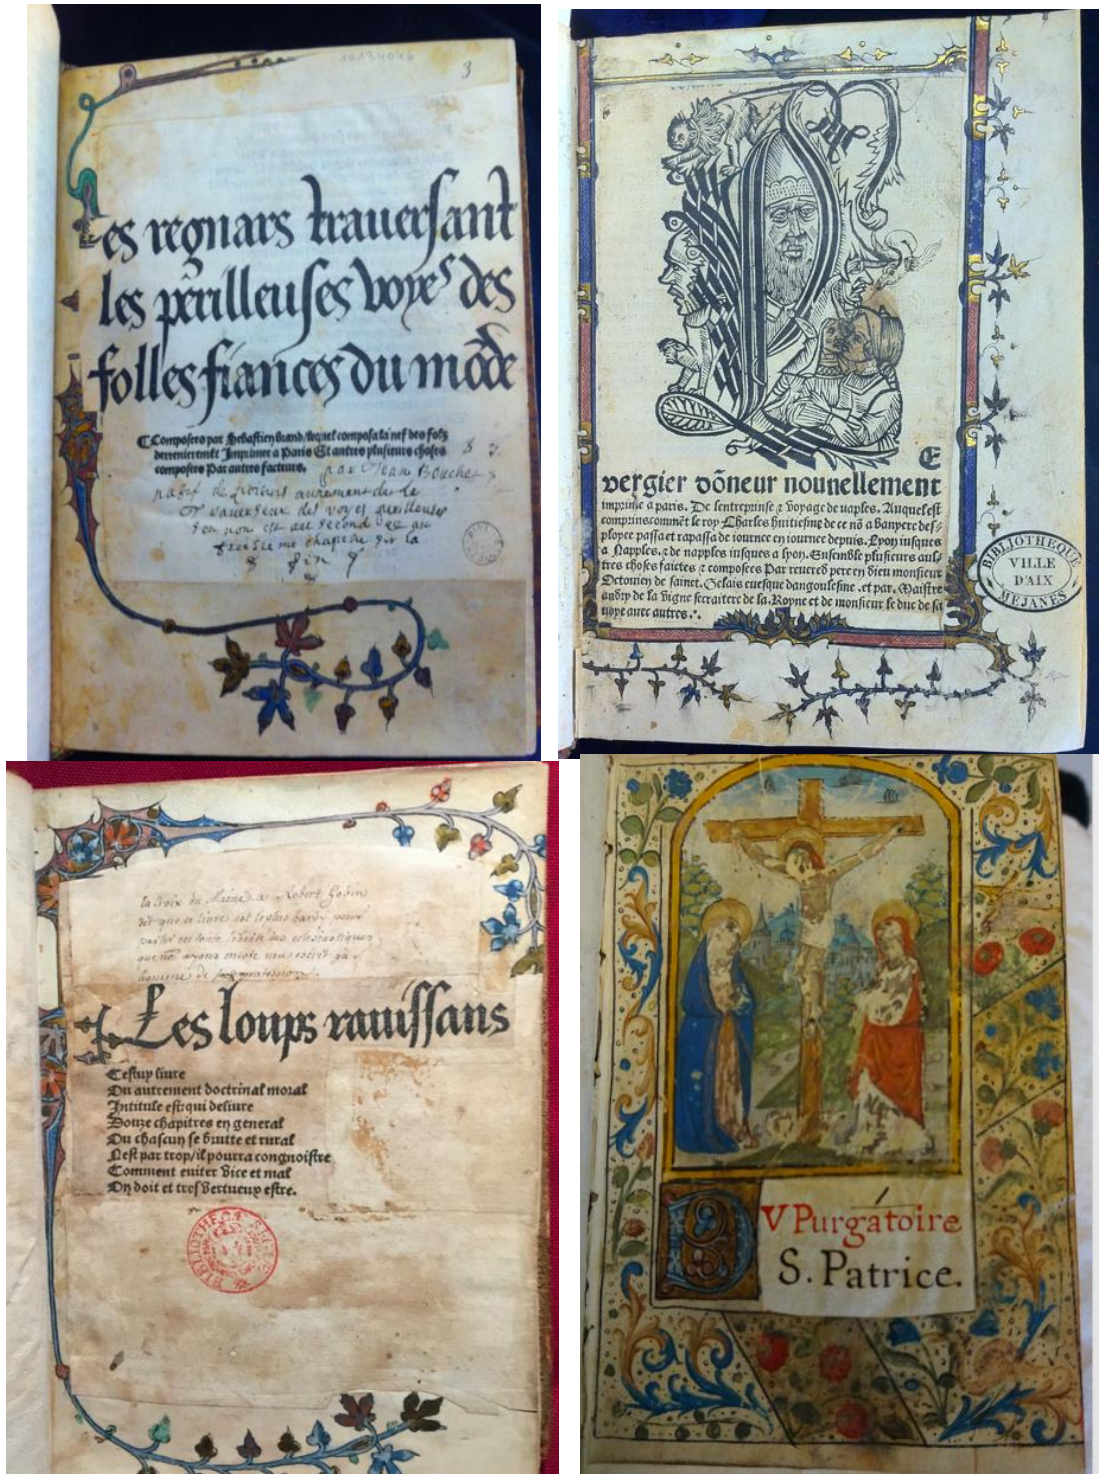 10134046
3
Les regnars trauersant
les perilleuses voyes des
folles fiances du mõde
Composees par Sebastien brand/lequel composa la nef des folz
derrenieremẽt Imprimee a Paris Et autres plusieurs choses
composees Par autres facteurs.
par Jean Bouchet
natif de poitiers autrement dit le
Traverseur des voyes perilleuses
son nom est au second
chapitre sur la
fin
LE
vergier dõneur nouuellement
imprime a paris. De lentreprinse ⁊ voyage de naples. Auquel est
comprins commẽt le roy Charles huitiesme de ce nõ a banyere des/
ployee passa et rapassa de iournee en iournee depuis. Lyon iusques
a Napples. ⁊ de napples iusques a lyon. Ensemble plusieurs aul/
tres choses faictes ⁊ composees Par reuerẽd pere en dieu monsieur
Octouien de sainct. Gelais euesque dangoulesme .et par. Maistre
andry de la vigne secraitere de la. Royne et de monsieur le duc de sa
uoye auec autres.
BIBLIOTHEQUE
VILLE
D'AIX
MEJANES
la Croix du Maine Robert Gobin
dit que ce livre est le plus hardy pour
parler en toute liberté des eclesiastiques
que nous ayons encore veu escrit par
homme de sa profession
Les loups rauissans
Cestuy liure
Ou autrement doctrinal moral
Intitule est: qui deliure
Douze chapitres en general
Ou chascun se brutte et rural
Nest par trop/il pourra congnoistre
Comment euiter vice et mal
On doit et tres vertueux estre.
DV Purgatoire
S. Patrice.